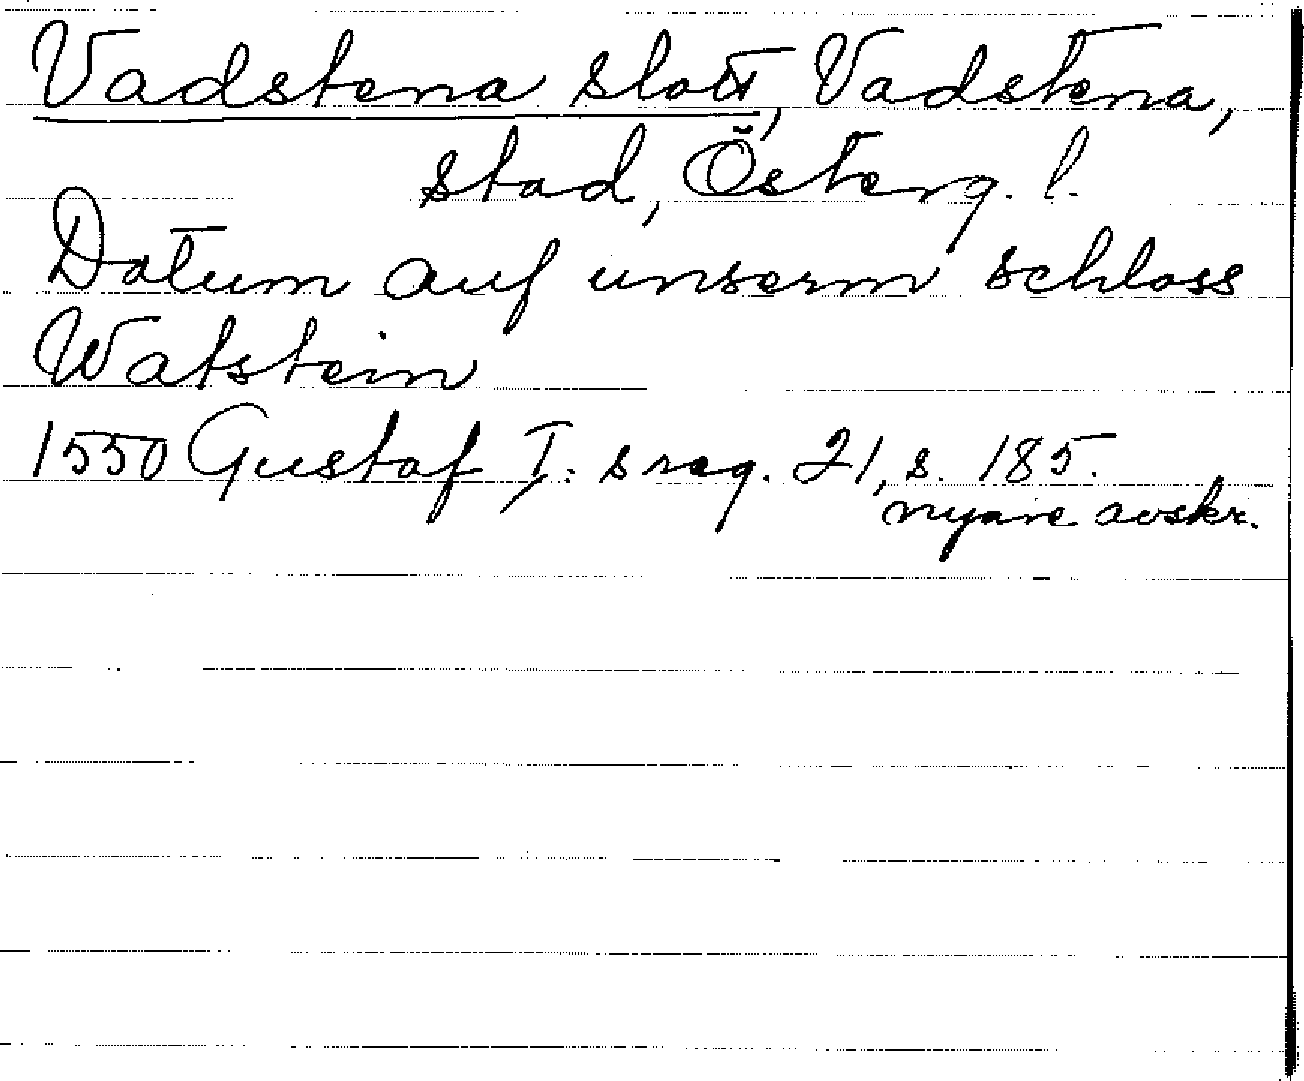 Vadstena slott, Vadstena,
stad, Österg. l.
Datum auf unserm schloss
Watstein
1550 Gustaf I: s reg. 21, s. 185.
nyare avskr.